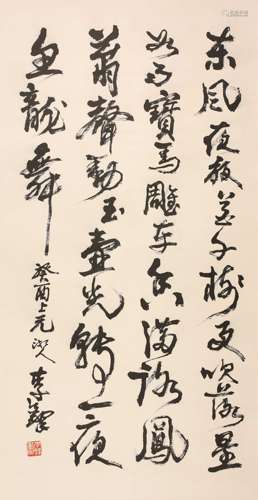 东风夜放花千树更吹落星
如雨宝马雕车香满路凤
萧声动玉壶光转一夜
鱼龙舞
癸酉上元